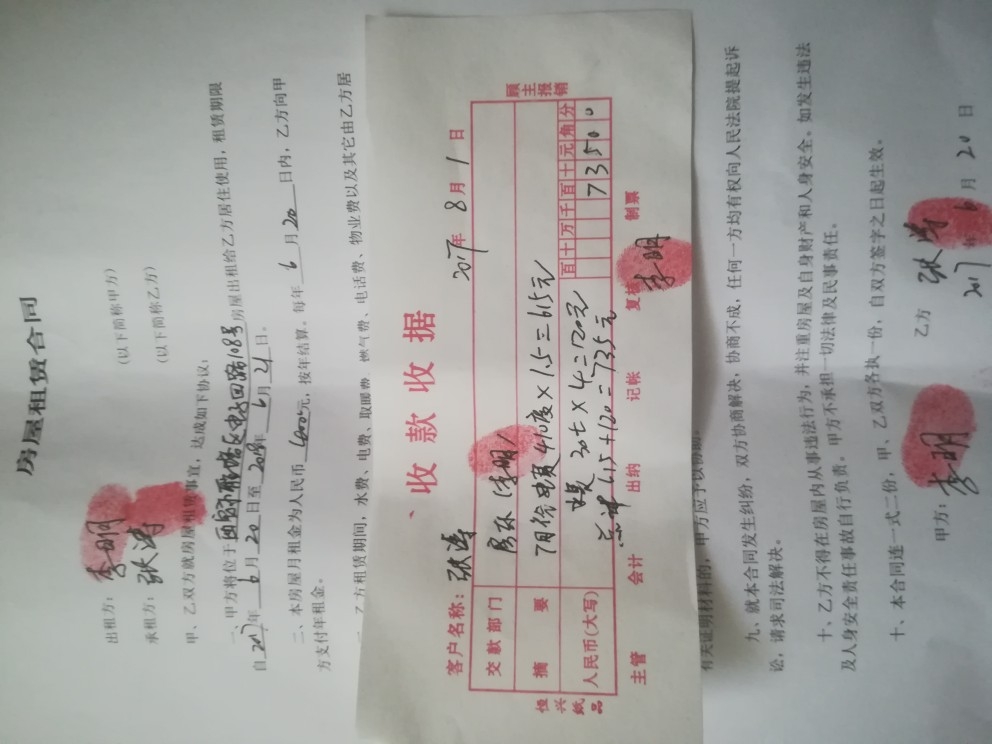 房屋租赁合同
出租方：李明（以下简称甲方）
承租方：张涛（以下简称乙方）
甲、乙双方就房屋租赁事宜，达成如下协议：
一、甲方将位于西安市雁塔区电子四路108号房屋出租给乙方居住使用，租赁期限
自2017年6月20日至2018年6月21日。
二、本房屋月租金为人民币元，按年结算。每年6月20日内，乙方向甲
方支付年租金。
乙方租赁期间，水费、电费、取暖费、燃气费、电话费、物业费以及其它由乙方居
收款收据
2017年8月1日
客户名称：张涛
交款部门 房东（李明）
摘要 7月份电费410度×1.5＝615元
水费 30t×4＝120元
人民币(大写) 总计615+120＝735元
百十万千百十元角分
73500
主管 会计 出纳 记帐 复核 李明 制票
顾主报销
恒兴纸品
有关证明材料的，甲方应予以协助。
九、就本合同发生纠纷，双方协商解决，协商不成，任何一方均有权向人民法院提起诉
讼，请求司法解决。
十、乙方不得在房屋内从事违法行为，并注重房屋及自身财产和人身安全，如发生违法
及人身安全责任事故自行负责。甲方不承担一切法律及民事责任。
十、本合同连一式二份，甲、乙双方各执一份，自双方签字之日起生效。
甲方：李明
乙方 张涛
2017年6月20日